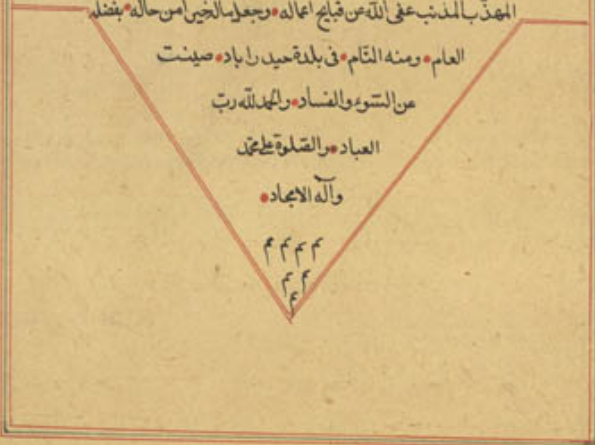 المهذّب المذنب عفى الله عن قبايح اعماله وجعل مآله خيرا من حاله بفضله
العام ومنه التام فى بلدة حيدراباد صينت
عن السّوء والفساد والحمد لله ربّ
العباد والصّلوة على محمّد
وآله الامجاد
م م م م
م م
م